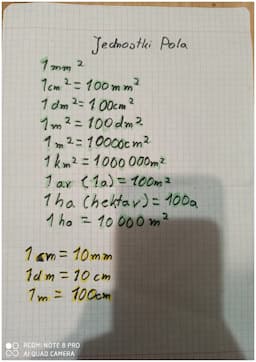 Jednostki Pola
1 mm²
1 cm² = 100 mm²
1 dm² = 100 cm²
1 m² = 100 dm²
1 m² = 10000 cm²
1 km² = 1000 000 m²
1 ar (1a) = 100 m²
1 ha (hektar) = 100a
1 ha = 10 000 m²
1 cm = 10 mm
1 dm = 10 cm
1 m = 100 cm
REDMI NOTE 8 PRO
AI QUAD CAMERA